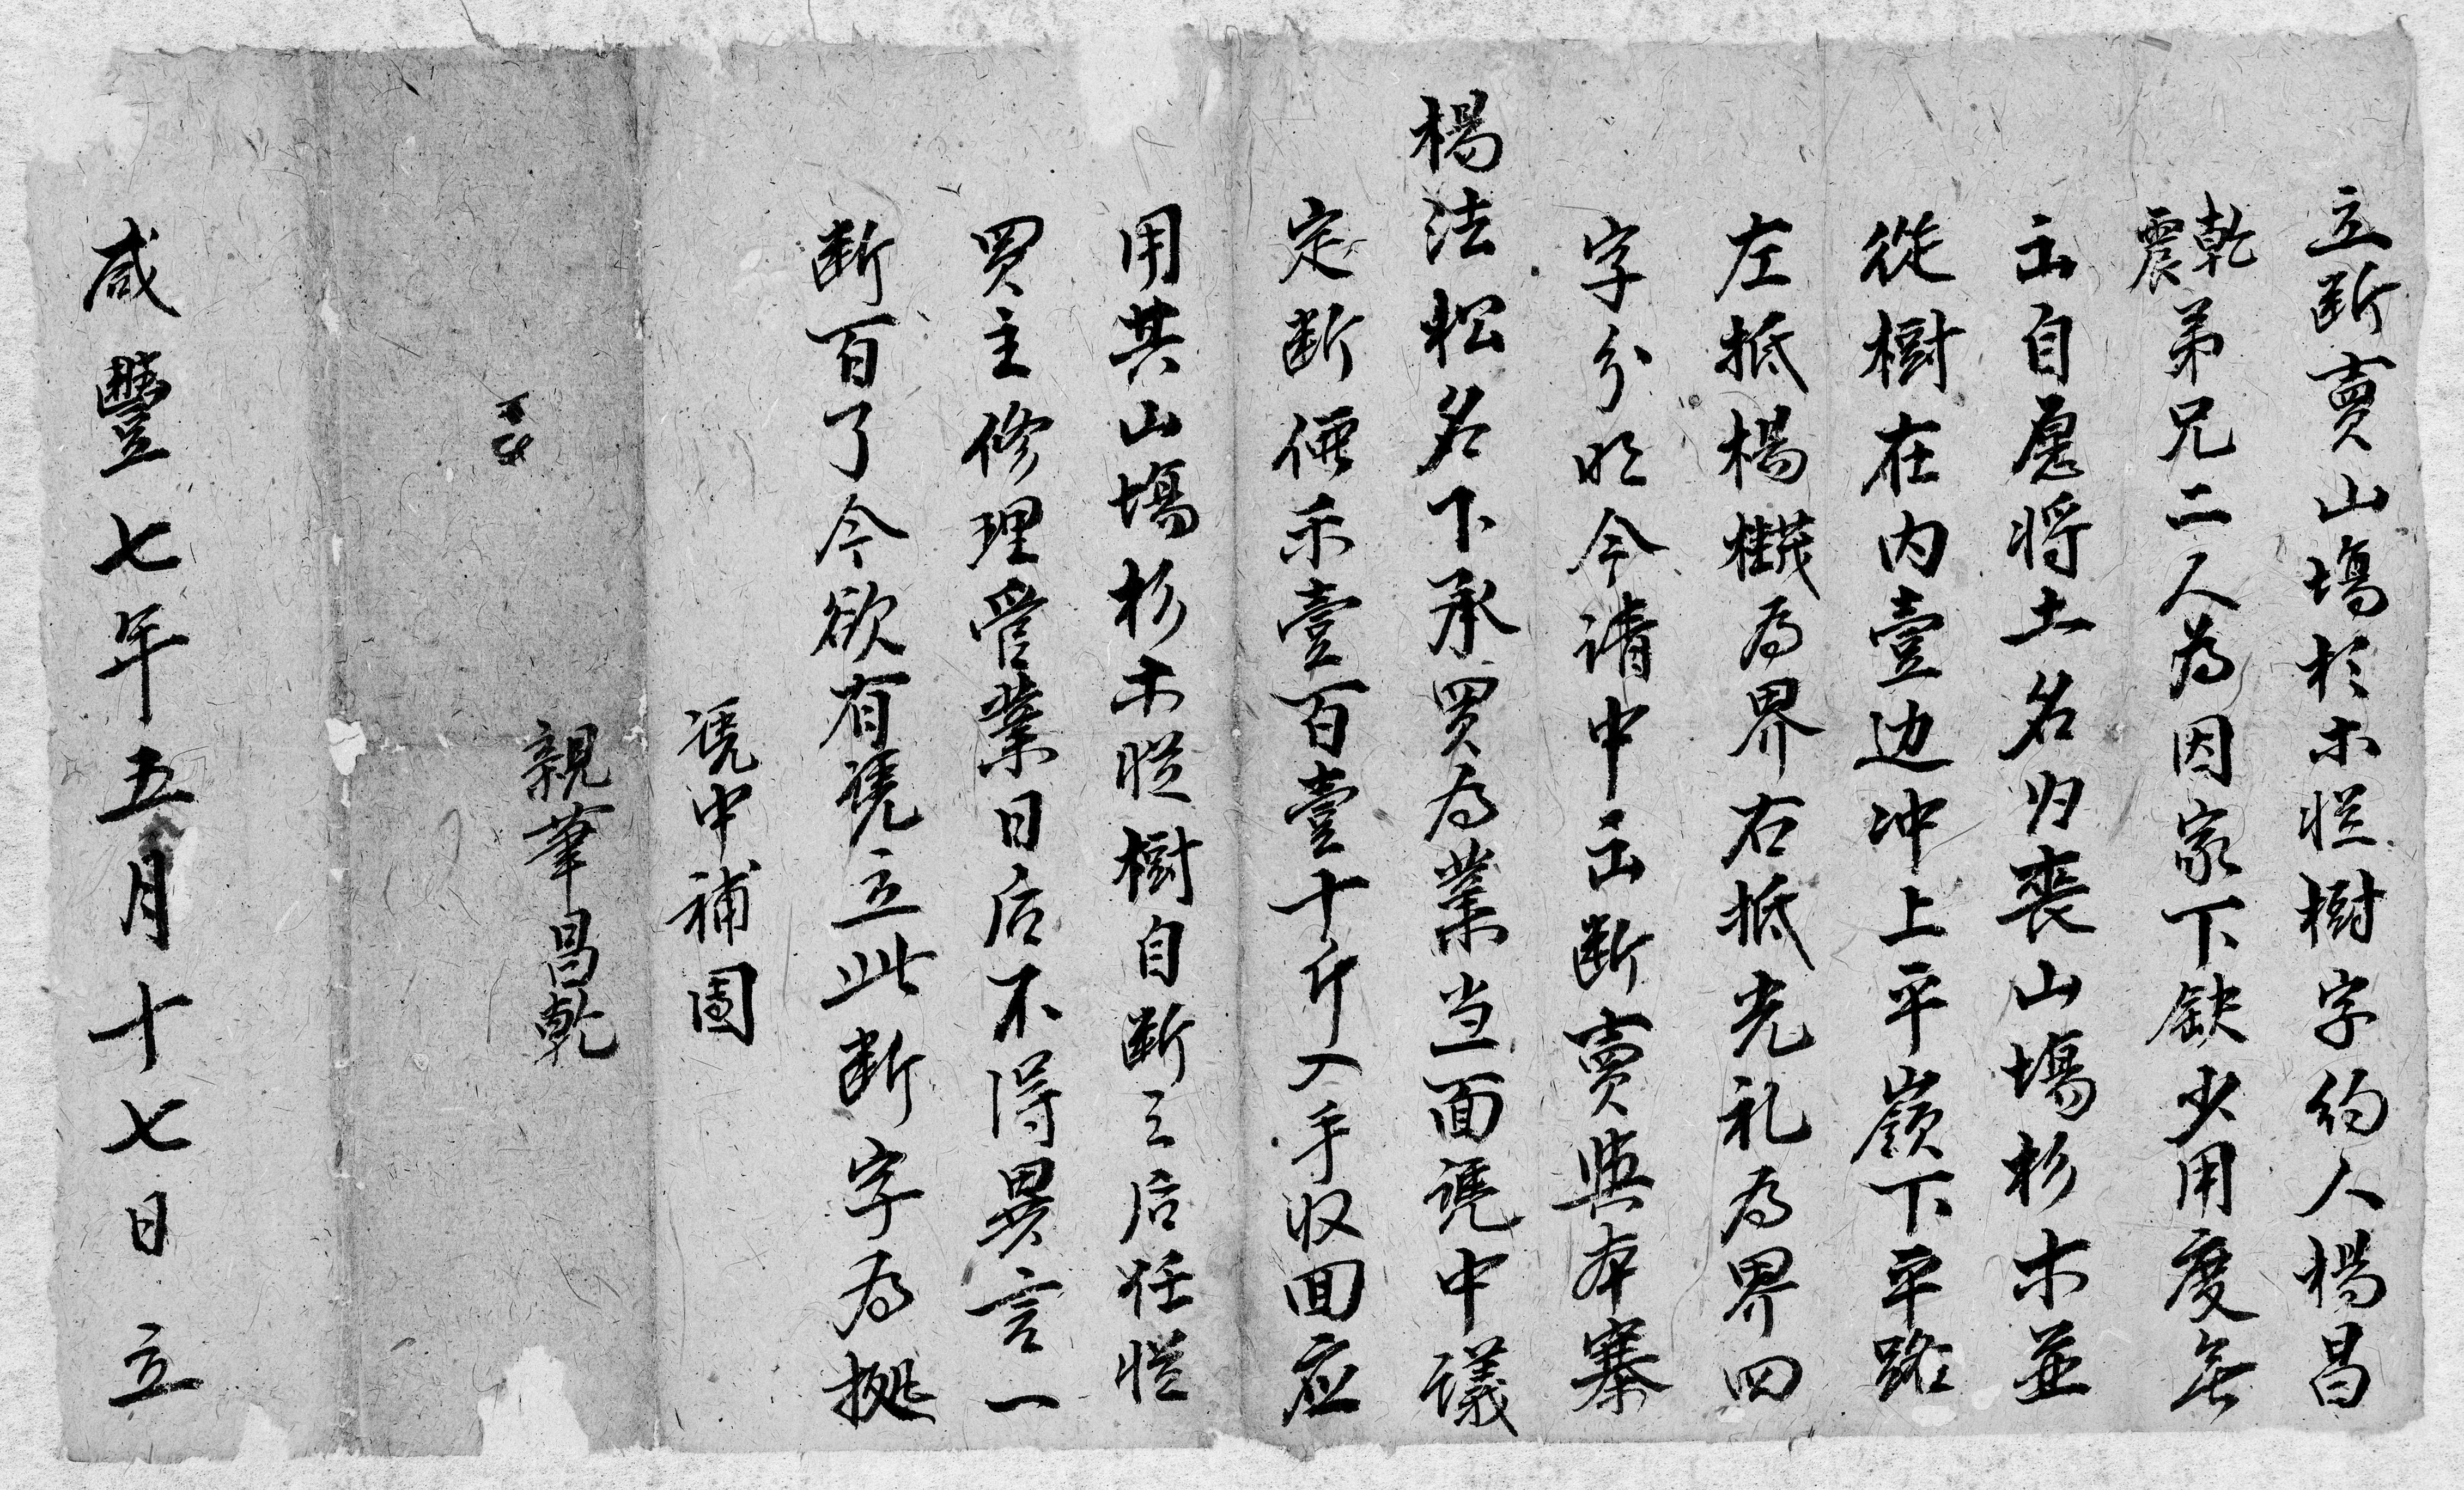 立断賣山塲杉木悂樹字約人楊昌
乾震弟兄二人為因家下缺少用度無
出自愿将土名归丧山塲杉木並
從樹在内壹边冲上平嶺下平路
左抵楊橶為界右抵光礼為界四
字分明今請中出断賣與本寨
楊法松名下承買為業当面凭中議
定断價禾壹百壹十斤入手收回应
用其山塲杉木悂樹自断之后任悂
買主修理管業日后不得異言一
断百了今欲有凭立此断字為拠
凭中補國
親筆昌乾
咸豐七年五月十七日立